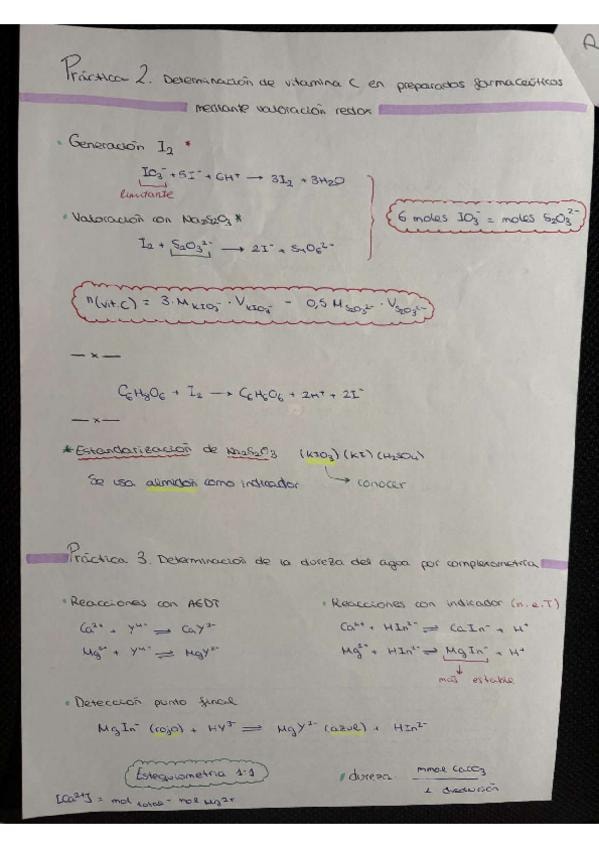 Práctica 2. Determinación de vitamina C en preparados farmaceúticos
mediante valoración redox
• Generación I₂ *
IO₃⁻ + 5I⁻ + 6H⁺ → 3I₂ + 3H₂O
limitante
• Valoración con Na₂S₂O₃ *
I₂ + S₂O₃²⁻ → 2I⁻ + S₄O₆²⁻
6 moles IO₃⁻ = moles S₂O₃²⁻
n(vit.C) = 3·M KIO₃⁻ · V KIO₃⁻ − 0,5 M S₂O₃²⁻ · V S₂O₃²⁻
— x —
C₆H₈O₆ + I₂ → C₆H₆O₆ + 2H⁺ + 2I⁻
— x —
* Estandarización de Na₂S₂O₃ (KIO₃) (KI) (H₂SO₄)
Se usa almidón como indicador → conocer
Práctica 3. Determinación de la dureza del agua por complexometría
• Reacciones con AEDT
Ca²⁺ + Y⁴⁻ ⇌ CaY²⁻
Mg²⁺ + Y⁴⁻ ⇌ MgY²⁻
• Reacciones con indicador (n.e.T)
Ca²⁺ + HIn²⁻ ⇌ CaIn⁻ + H⁺
Mg²⁺ + HIn²⁻ ⇌ MgIn⁻ + H⁺
más estable
• Detección punto final
MgIn⁻ (rojo) + HY³⁻ ⇌ MgY²⁻ (azul) + HIn²⁻
Estequiometría 1:1
[Ca²⁺] = mol total − mol Mg²⁺
• dureza mmol CaCO₃
L disolución